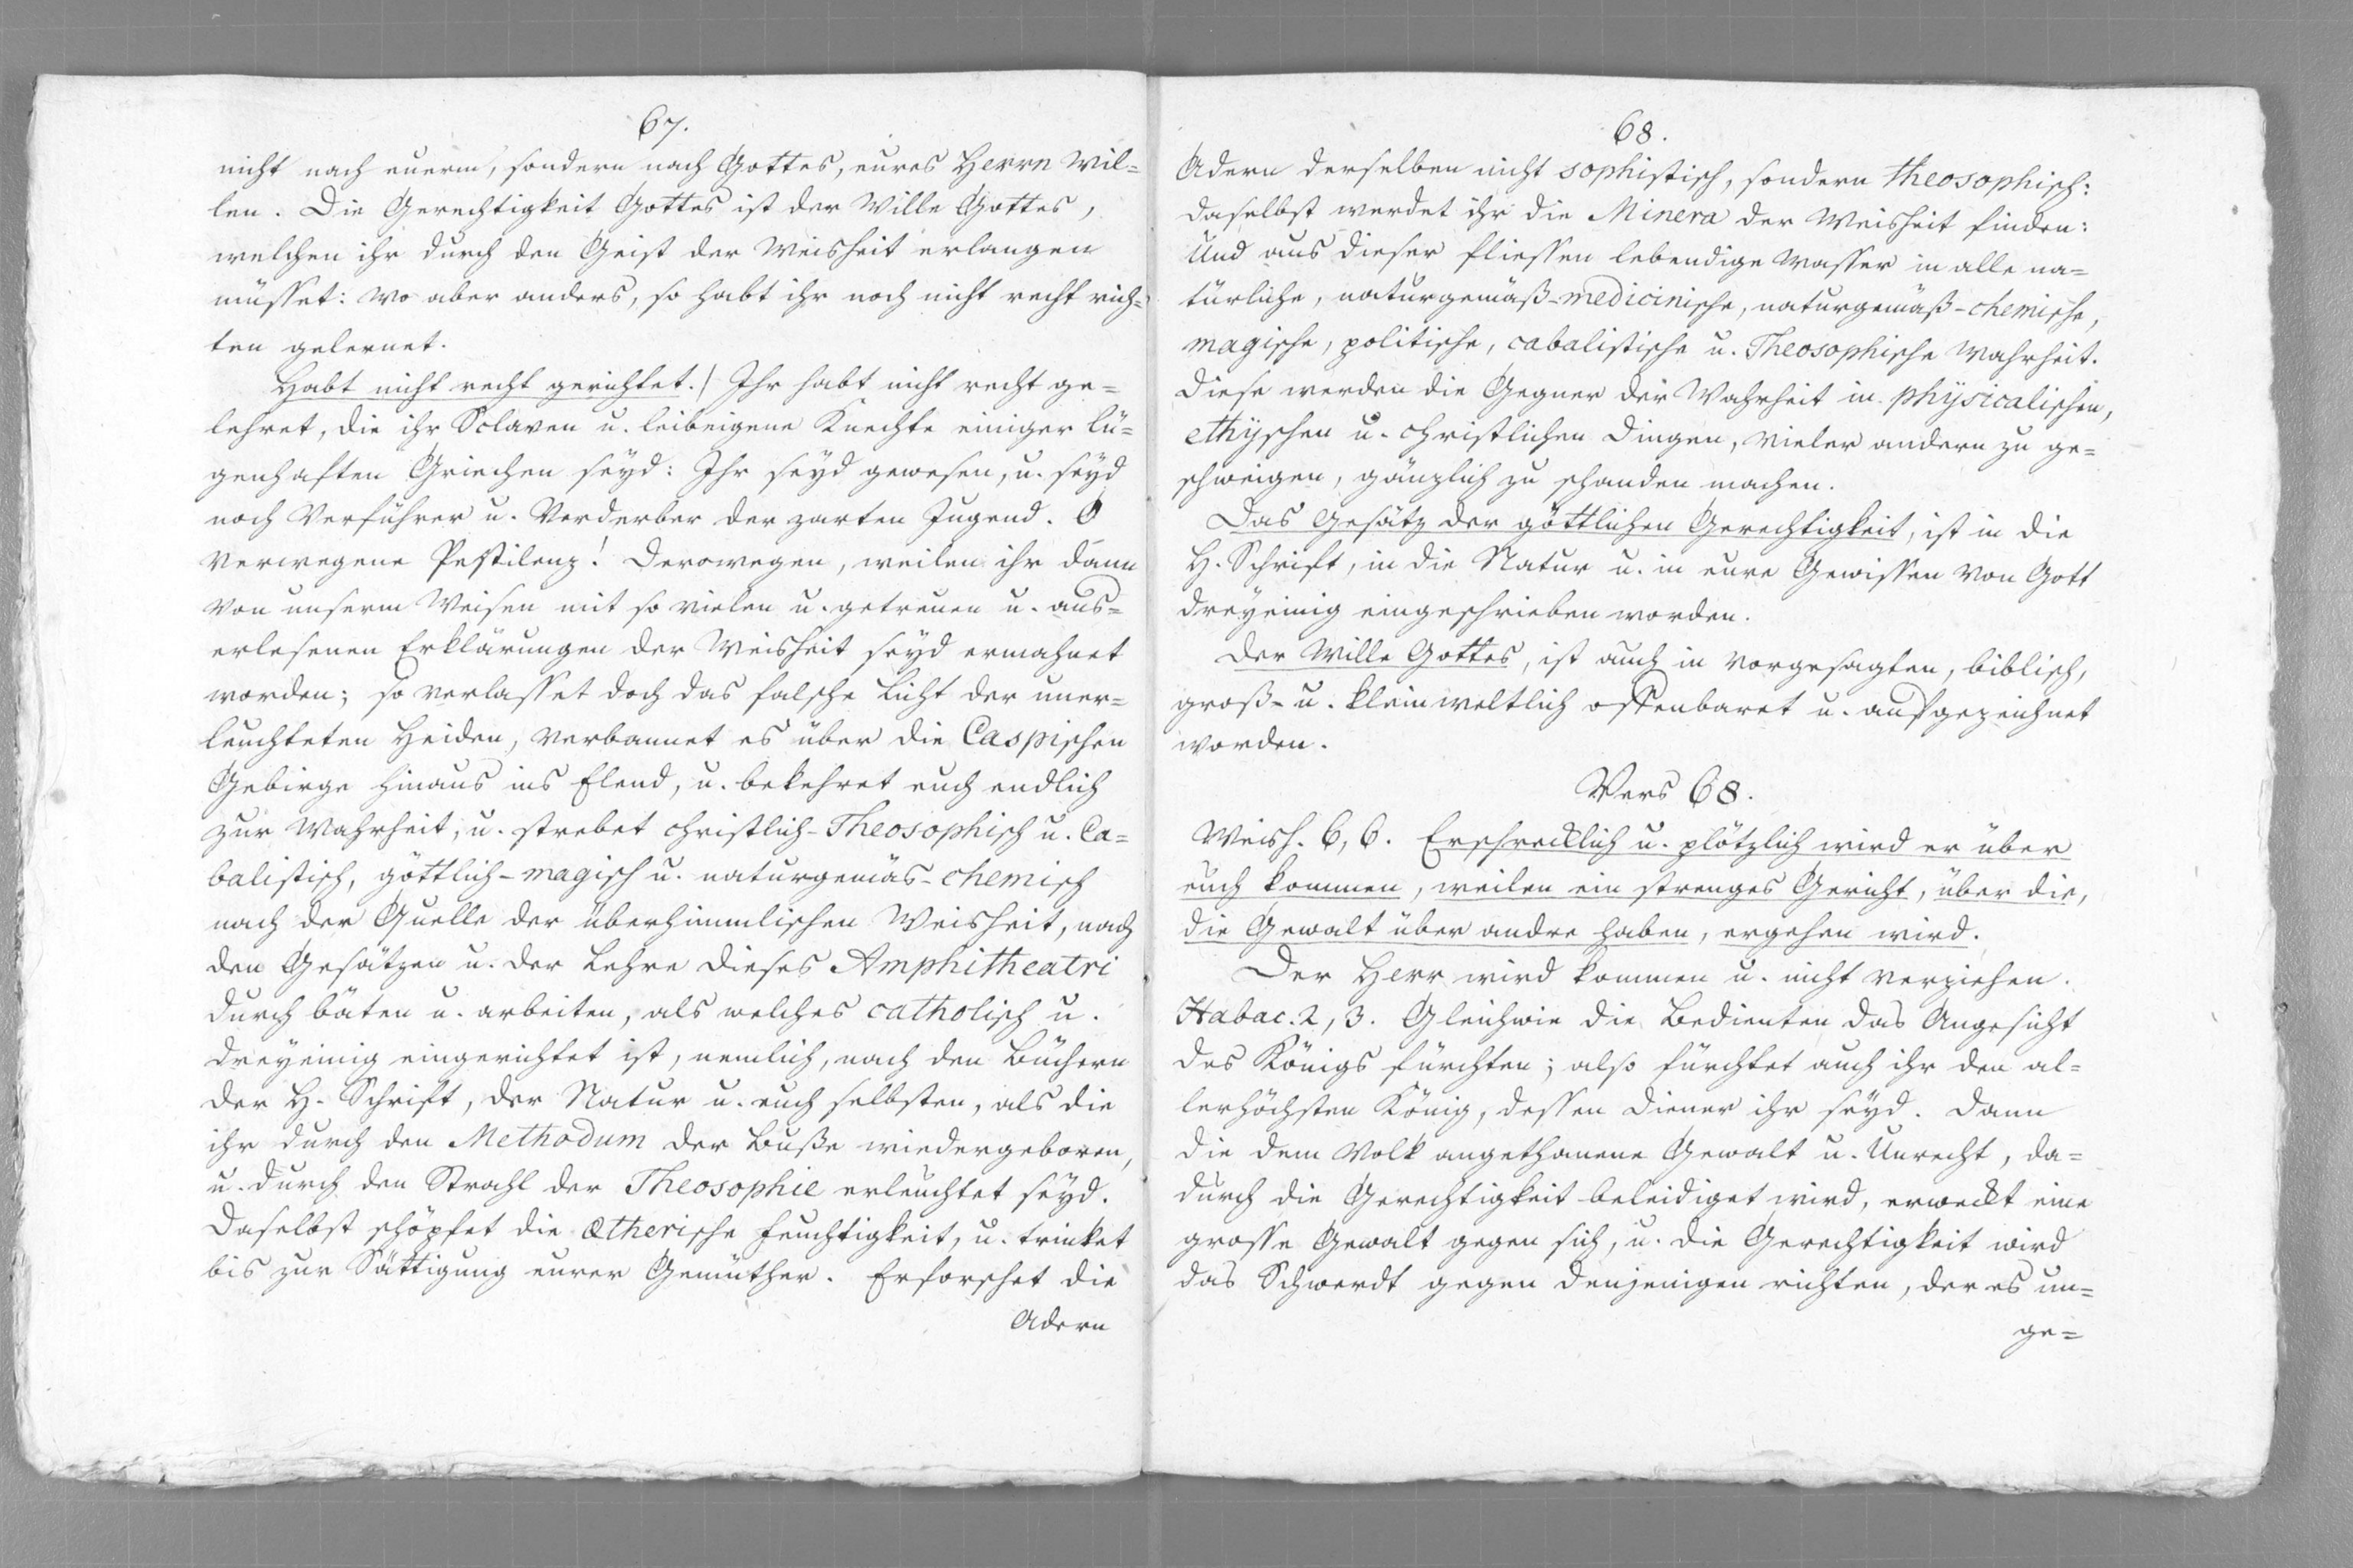 67.
nicht nach euerm, sondern nach Gottes, eures Herrn Wil=
len. Die Gerechtigkeit Gottes ist der Wille Gottes,
welchen ihr durch den Geist der Weisheit erlangen
müsset: wo aber anders, so habt ihr noch nicht recht rich=
ten gelernet.
Habt nicht recht gerichtet./ Ihr habt nicht recht ge=
lehret, die ihr Sclaven u. leibeigene Knechte einiger lü=
genhaften Griechen seyd: Ihr seyd gewesen, u. seyd
noch Verführer u. Verderber der zarten Jugend. O
verwegene Pestilenz! Derowegen, weilen ihr dann
von unserm Weisen mit so vielen u. getreuen u. aus=
erlesenen Erklärungen der Weisheit seyd ermahnet
worden; so verlasset doch das falsche Licht der uner=
leuchteten Heiden, verbannet es über die Caspischen
Gebirge hinaus ins Elend, u. bekehret euch endlich
zur Wahrheit, u. strebet christlich-Theosophisch u. Ca=
balistisch, göttlich-magisch u. naturgemäs-chemisch
nach der Quelle der überhimmlischen Weisheit, nach
den Gesätzen u. der Lehre dieses Amphitheatri
durch bäten u. arbeiten, als welches catholisch u.
dreyeinig eingerichtet ist, nemlich, nach den Büchern
der H. Schrift, der Natur u. euch selbsten, als die
ihr durch den Methodum der Buße wiedergeboren,
u. durch den Strahl der Theosophie erleuchtet seyd.
Daselbst schöpfet die Ætherische Feuchtigkeit, u. trinket
bis zur Sättigung eurer Gemüther. Erforschet die
Adern
68.
Adern derselben nicht sophistisch, sondern theosophisch:
daselbst werdet ihr die Minera der Weisheit finden:
Und aus dieser fliessen lebendige Wasser in alle na=
türliche, naturgemäß-medicinische, naturgemäß-chemische,
magische, politische, cabalistische u. Theosophische Wahrheit.
Diese werden die Gegner der Wahrheit in physicalischen,
ethyschen u. christlichen Dingen, vieler andern zu ge=
schweigen, gänzlich zu schanden machen.
Das Gesätz der göttlichen Gerechtigkeit, ist in die
H. Schrift, in die Natur u. in eure Gewissen von Gott
dreyeinig eingeschrieben worden.
Der Wille Gottes, ist auch in vorgesagten, biblisch,
groß- u. kleinweltlich offenbaret u. aufgezeichnet
worden.
Vers 68.
Weish. 6, 6. Erschrecklich u. plötzlich wird er über
euch kommen, weilen ein strenges Gericht, über die,
die Gewalt über andre haben, ergehen wird.
Der Herr wird kommen u. nicht verziehen.
Habac. 2, 3. Gleichwie die Bedienten das Angesicht
des Königs fürchten; also fürchtet auch ihr den al=
lerhöchsten König, dessen Diener ihr seyd. Dann
die dem Volk angethanene Gewalt u. Unrecht, da=
durch die Gerechtigkeit beleidiget wird, erweckt eine
grosse Gewalt gegen sich, u. die Gerechtigkeit wird
das Schwerdt gegen denjenigen richten, der es un=
ge=